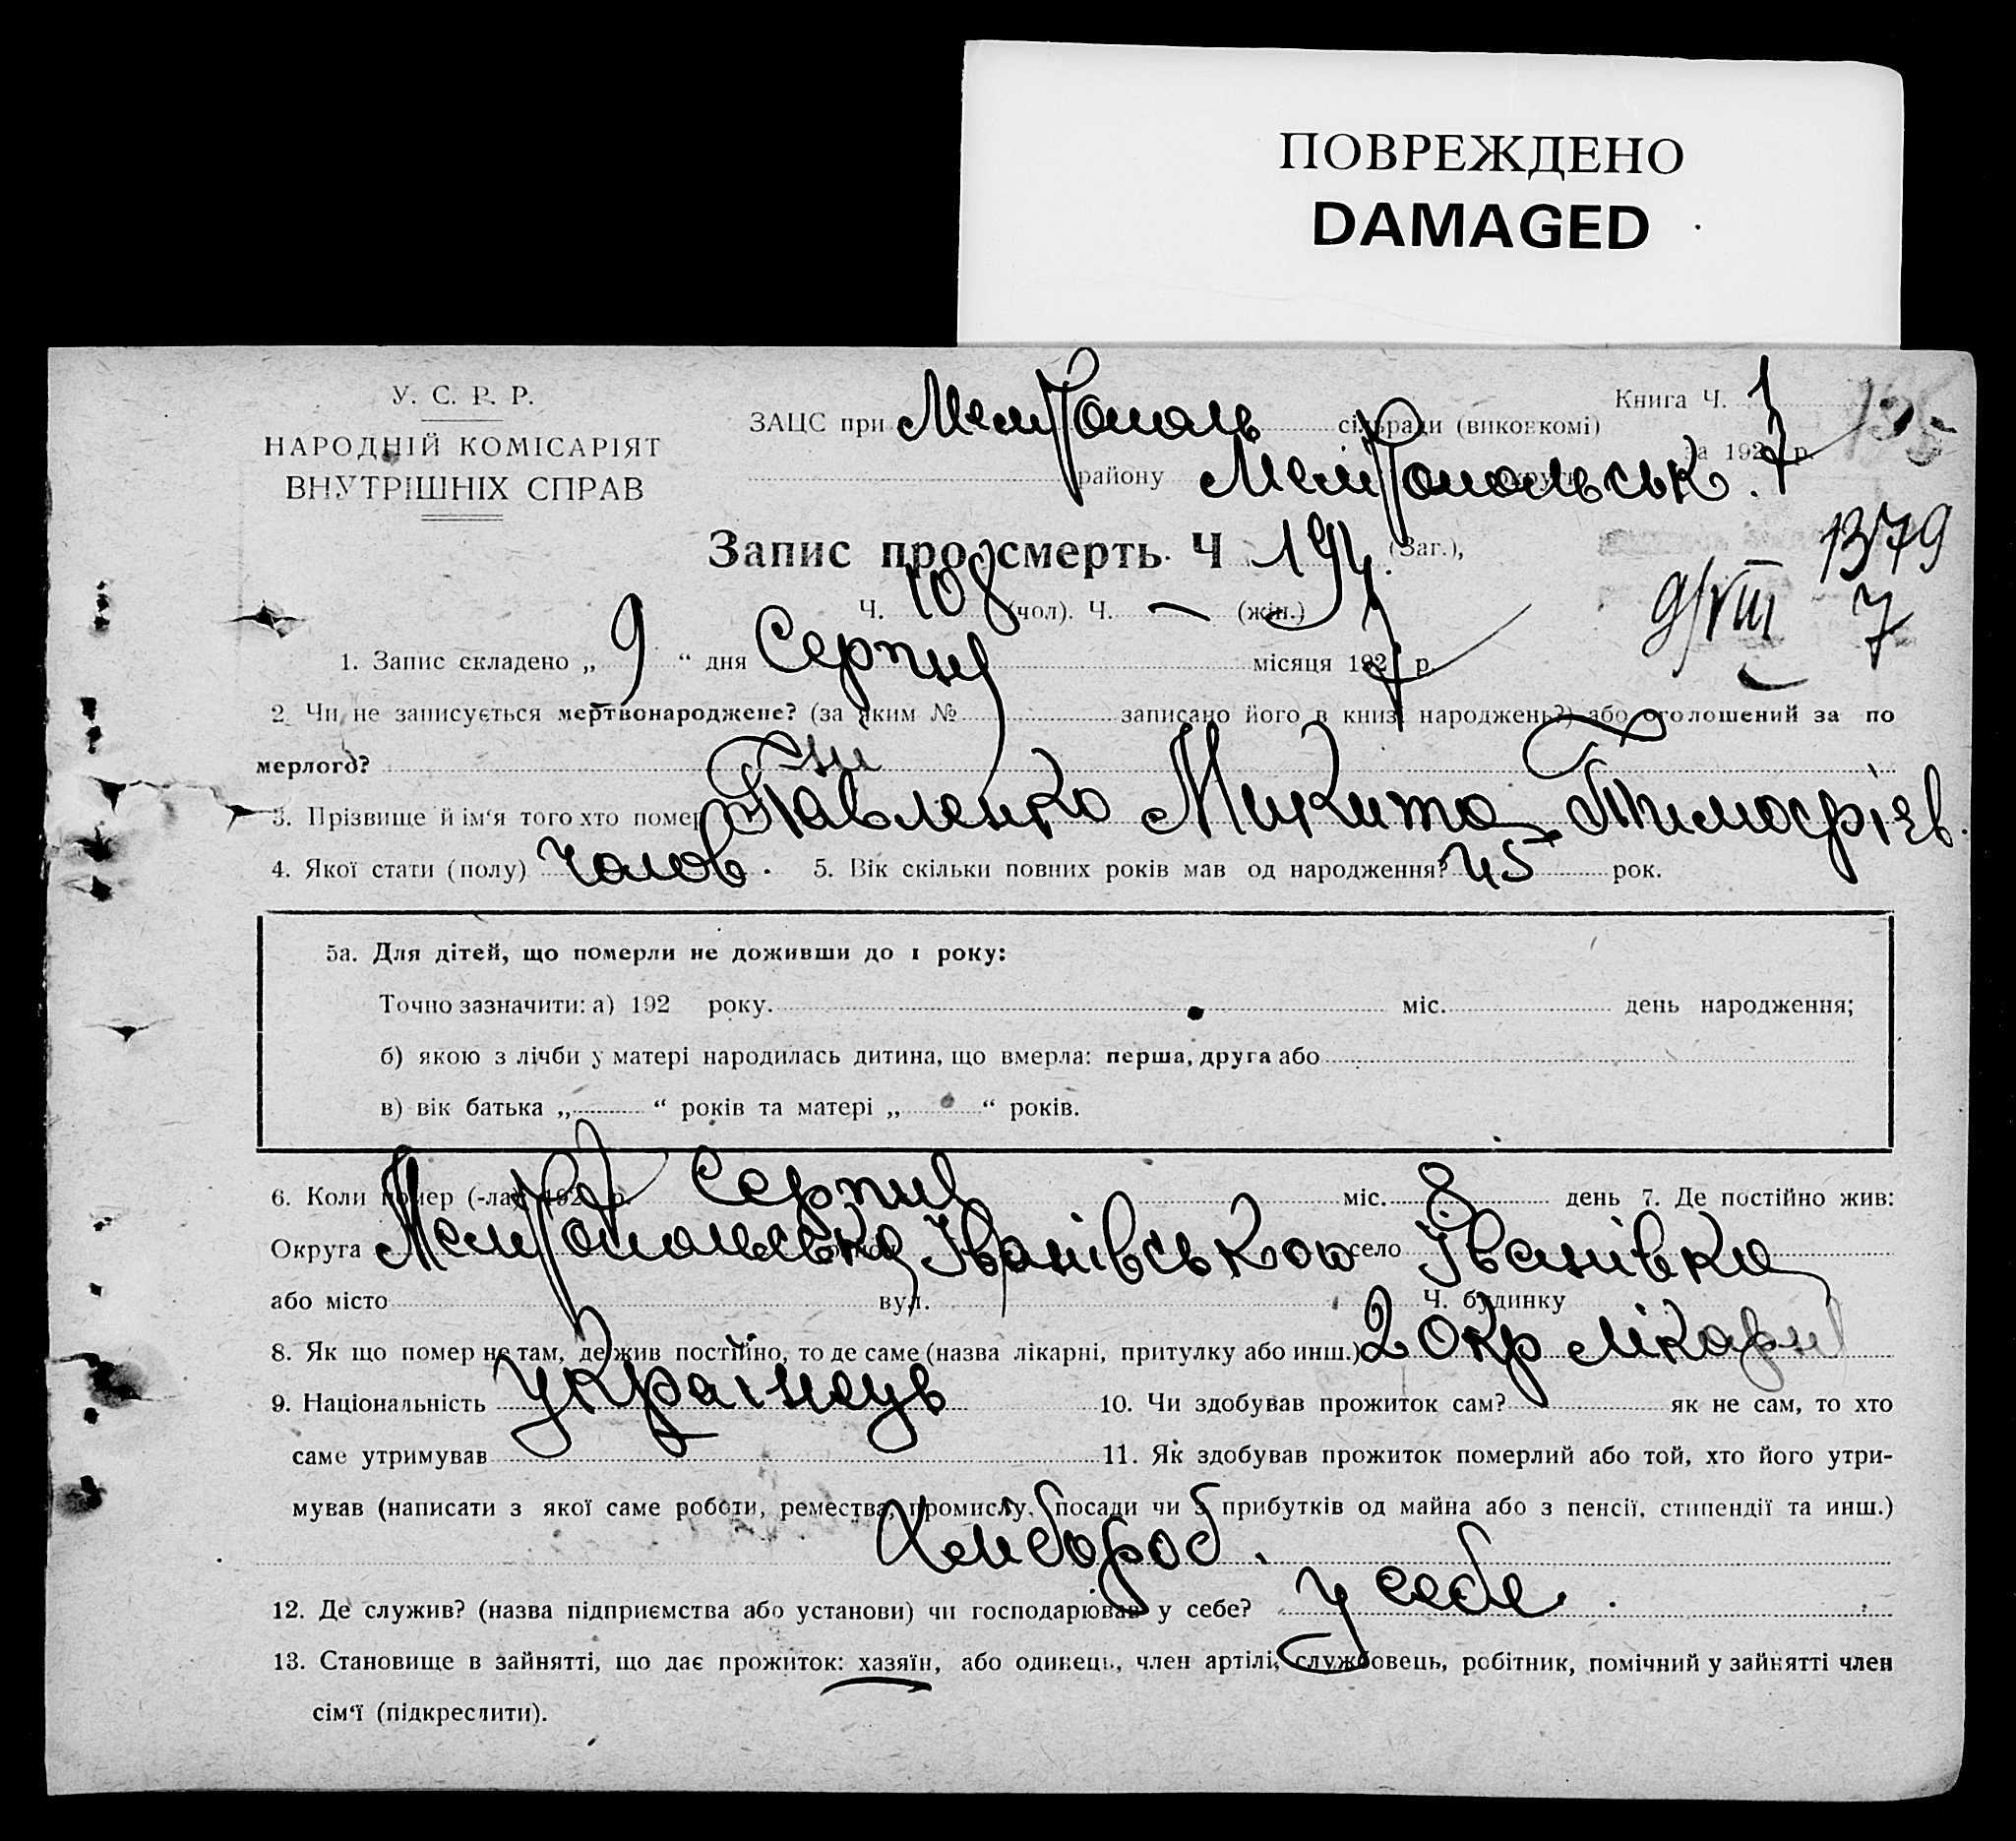 ПОВРЕЖДЕНО
DAMAGED
У. С. Р. Р.
НАРОДНІЙ КОМІСАРІЯТ
ВНУТРІШНІХ СПРАВ
Книга Ч. 1
ЗАЦС при Мелітополь сільради (виконкомі)
за 1927 р.
району Мелітопольськ. округи
Запис про смерть Ч 194 (Заг.),
1379
Ч. 108 (чол). Ч. — (жін.)
9/VIII 7
1. Запис складено „ 9 “ дня Серпня місяця 1927 р.
2. Чи не записується мертвонароджене? (за яким № записано його в книзі народжень?) або оголошений за по
мерлого? Ні
3. Прізвище й ім‘я того хто помер Павленко Микита Тимофіїв.
4. Якої стати (полу) чолов. 5. Вік скільки повних років мав од народження? 45 рок.
5а. Для дітей, що померли не доживши до 1 року:
Точно зазначити: а) 192 року. міс. день народження;
б) якою з лічби у матері народилась дитина, що вмерла: перша, друга або
в) вік батька „ “ років та матері „ “ років.
6. Коли помер (-ла) 1927 р. Серпня міс. 8 день 7. Де постійно жив:
Округа Мелітопольська Іванівською село Іванівка
або місто вул. Ч. будинку
8. Як що помер не там, де жив постійно, то де саме (назва лікарні, притулку або инш.) 2 Окр лікарні
9. Національність українець 10. Чи здобував прожиток сам? як не сам, то хто
саме утримував 11. Як здобував прожиток померлий або той, хто його утри-
мував (написати з якої саме роботи, ремества, промислу, посади чи з прибутків од майна або з пенсії, стипендії та инш.)
Хлібороб.
12. Де служив? (назва підприємства або установи) чи господарював у себе? у себе.
13. Становище в зайнятті, що дає прожиток: хазяїн, або одинець, член артілі, службовець, робітник, помічний у зайнятті член
сім‘ї (підкреслити).